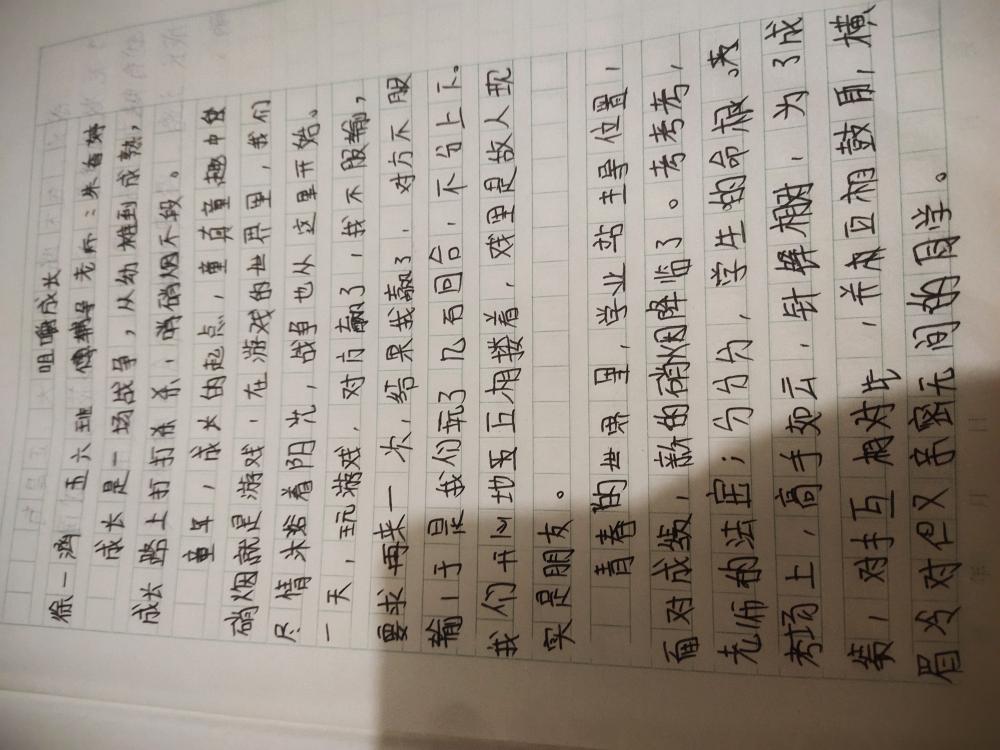 咀嚼成长
徐一涵 五六班 老师：朱春婷
成长是一场战争，从幼稚到成熟，
成长路上打打杀杀，硝烟不段。
童年，成长的起点，童真童趣中使
硝烟就是游戏，在游戏的世界里，我们
尽情沐浴着阳光，战争也从这里开始。
一天，玩游戏，对方赢了，我不服输，
要求再来一次，结果我赢了，对方不服
输，于是我们玩了几百回合，不分上下。
我们开心地互相搂着，戏里是敌人现
实是朋友。
青春的世界里，学业站主导位置，
面对成绩，新的硝烟降临了。考考考，
老师的法宝；分分分，学生的命根。在
考场上，高手如云，针锋相对，为了成
绩，对手互相对比，并相互相鼓用，横
眉冷对但又亲密无间的同学。